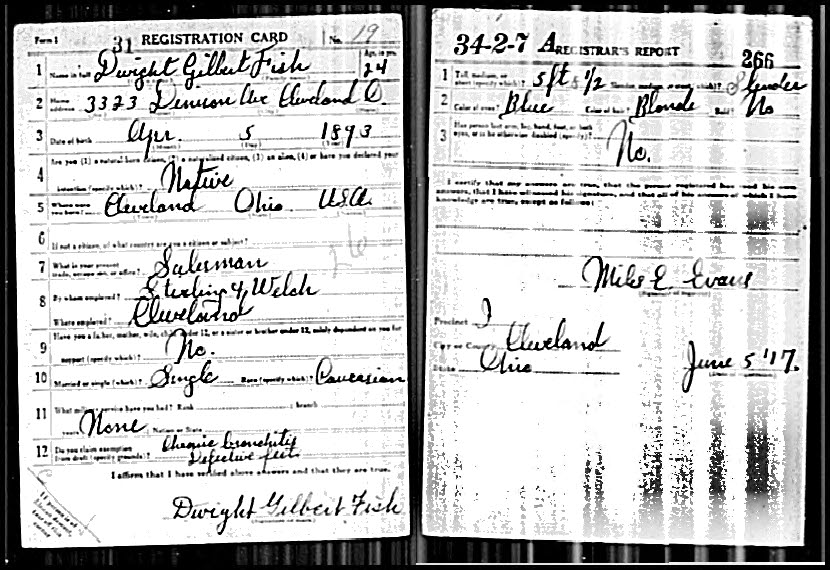 Form 1 31 REGISTRATION CARD No. 19
1 Name in full Dwight Gilbert Fish Age, in yrs. 24
2 Home address 3323 Denison Ave Cleveland O.
3 Date of birth Apr. 5 1893
4 Are you (1) a natural-born citizen, (2) a naturalized citizen, (3) an alien, (4) or have you declared your
intention (specify which)? Native
5 Where were you born? Cleveland Ohio U.S.A.
6 If not a citizen, of what country are you a citizen or subject?
26
7 What is your present trade, occupation, or office? Salesman
8 By whom employed? Sterling & Welch
Where employed? Cleveland
9 Have you a father, mother, wife, child under 12, or a sister or brother under 12, solely dependent on you for
support (specify which)? No.
10 Married or single (which)? Single Race (specify which)? Caucasian
11 What military service have you had? Rank ; branch
years None Nation or State
12 Do you claim exemption from draft (specify grounds)? Chronic bronchitis
Defective feet
I affirm that I have verified above answers and that they are true.
Dwight Gilbert Fish
34-2-7 A REGISTRAR'S REPORT 266
1 Tall, medium, or short (specify which)? 5 ft 5 1/2 Slender, medium, or stout (which)? Slender
2 Color of eyes? Blue Color of hair? Blonde Bald? No
3 Has person lost arm, leg, hand, foot, or both
eyes, or is he otherwise disabled (specify)?
No.
I certify that my answers are true, that the person registered has read his own
answers, that I have witnessed his signature, and that all of his answers of which I have
knowledge are true, except as follows:
Miles E Evans
(Signature of registrar)
Precinct I
City or County Cleveland
State Ohio June 5 '17.